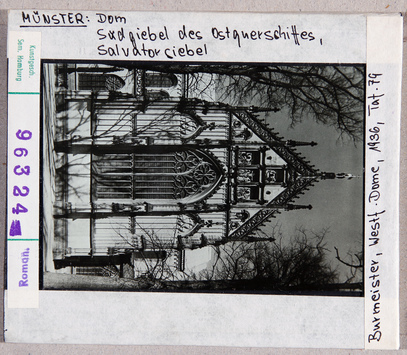 MÜNSTER: Dom
Südgiebel des Ostquerschiffes,
Salvatorgiebel
Kunstgesch.
Sem. Hamburg
96324
Roman.
Burmeister, Westf. Dome, 1936, Taf. 79